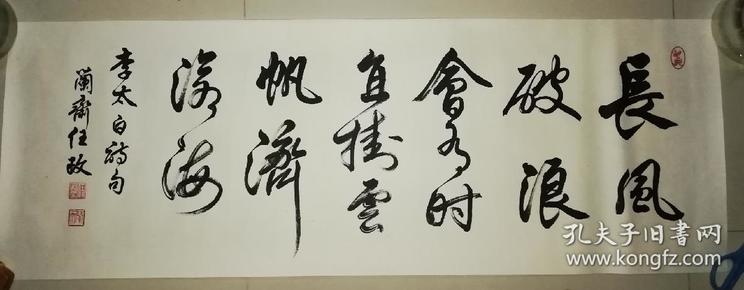 長風
破浪
會有时
直掛雲
帆濟
滄海
李太白詩句
蘭齋任政
孔夫子旧书网
www.kongfz.com